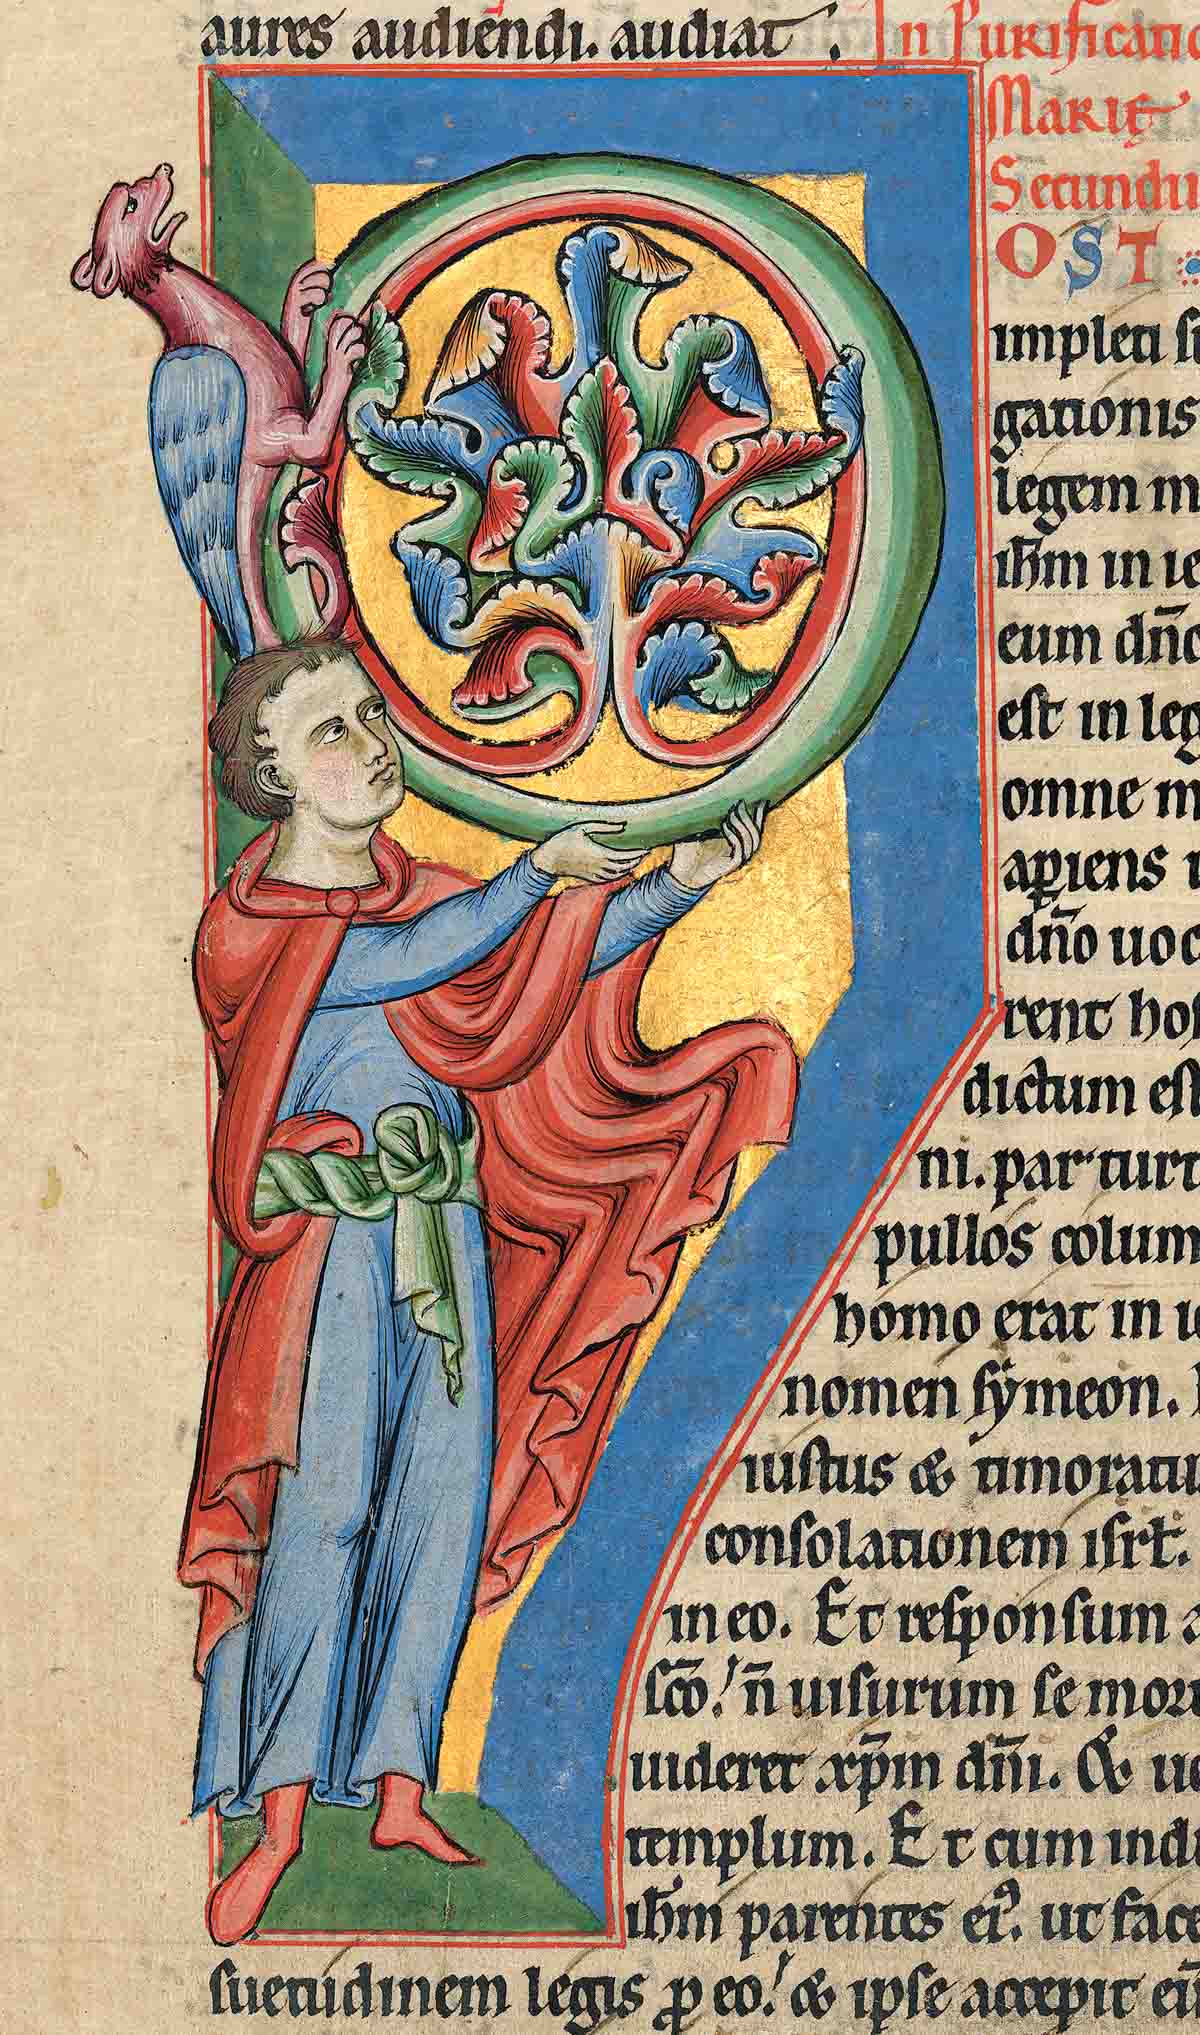 aures audiendi. audiat. In Purificatio
Marię
Secundu
P OST
impleti s
gationis
legem m
ih̄m in ie
eum dn̄o
est in leg
omne m
aꝑiens u
dn̄o uoc
rent hos
dictum est
ni. par turt
pullos colum
homo erat in i
nomen sẏmeon.
iustus & timoratu
consolationem isrl̄.
in eo. Et responsum a
sc̄o. n̄ uisurum se mor
uideret xp̄m dn̄i. & ue
templum. Et cum indu
ih̄m parentes ei᾿. ut face
suetudinem legis ꝓ eo. & ipse accepit eū